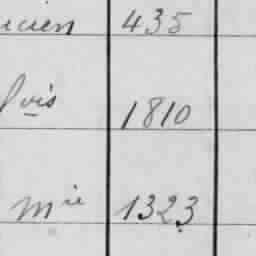 ucien 435
lois 1810
Mie 1323